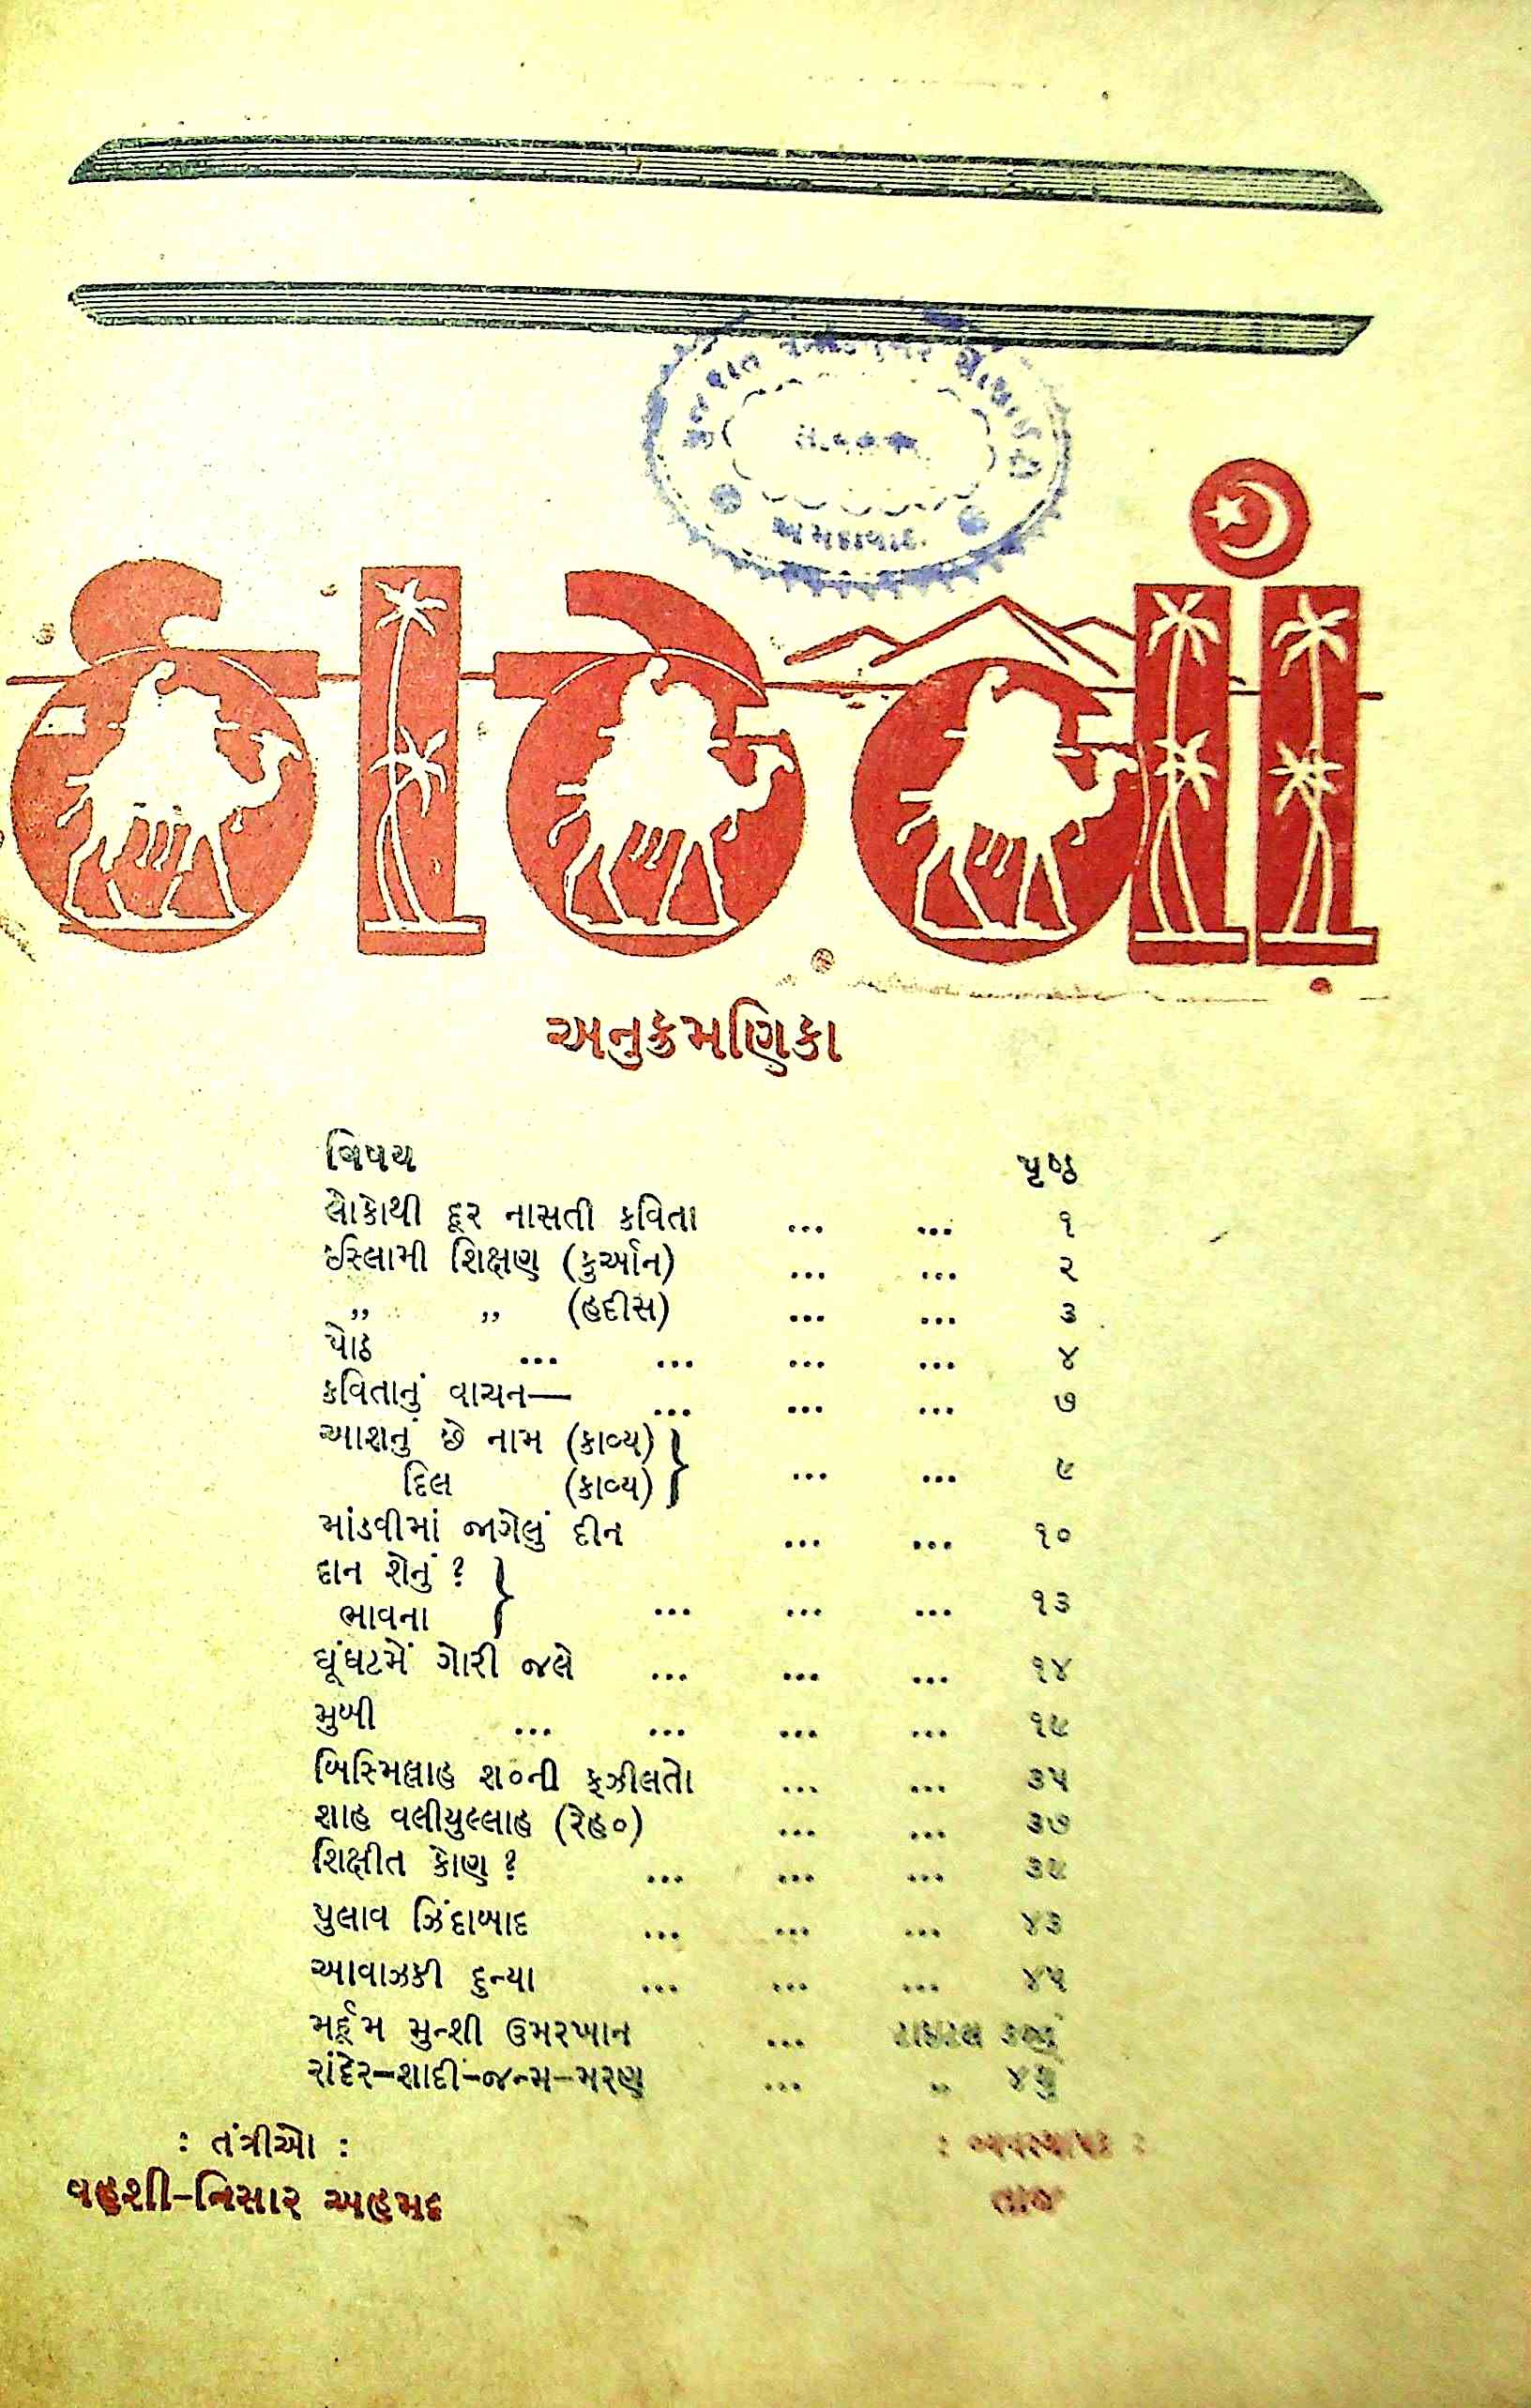 અમદાવાદ.
કારવાં
અનુક્રમણિકા
વિષય પૃષ્ઠ
લોકોથી દૂર નાસતી કવિતા ... ... ૧
ઇસ્લામી શિક્ષણ (કુર્આન) ... ... ૨
,, ,, (હદીસ) ... ... ૩
પોઠ ... ... ... ... ૪
કવિતાનું વાચન— ... ... ... ૭
આશનું છે નામ (કાવ્ય) }
દિલ (કાવ્ય) } ... ... ૯
માંડવીમાં જાગેલું દીન ... ... ૧૦
દાન શેનું ? }
ભાવના } ... ... ... ૧૩
ઘૂંઘટમેં ગોરી જલે ... ... ... ૧૪
મુખી ... ... ... ... ૧૯
બિસ્મિલ્લાહ શ૦ની ફઝીલતો ... ... ૩૫
શાહ વલીયુલ્લાહ (રેહ૦) ... ... ૩૭
શિક્ષીત કોણ ? ... ... ... ૩૯
પુલાવ ઝિંદાબાદ ... ... ... ૪૩
આવાઝકી દુન્યા ... ... ... ૪૫
મર્હૂમ મુન્શી ઉમરખાન ... ટાઇટલ ૩જું
રાંદેર-શાદી-જન્મ-મરણ ... ,, ૪થું
: તંત્રીઓ : : વ્યવસ્થાપક :
વહશી-નિસાર અહમદ તાજ